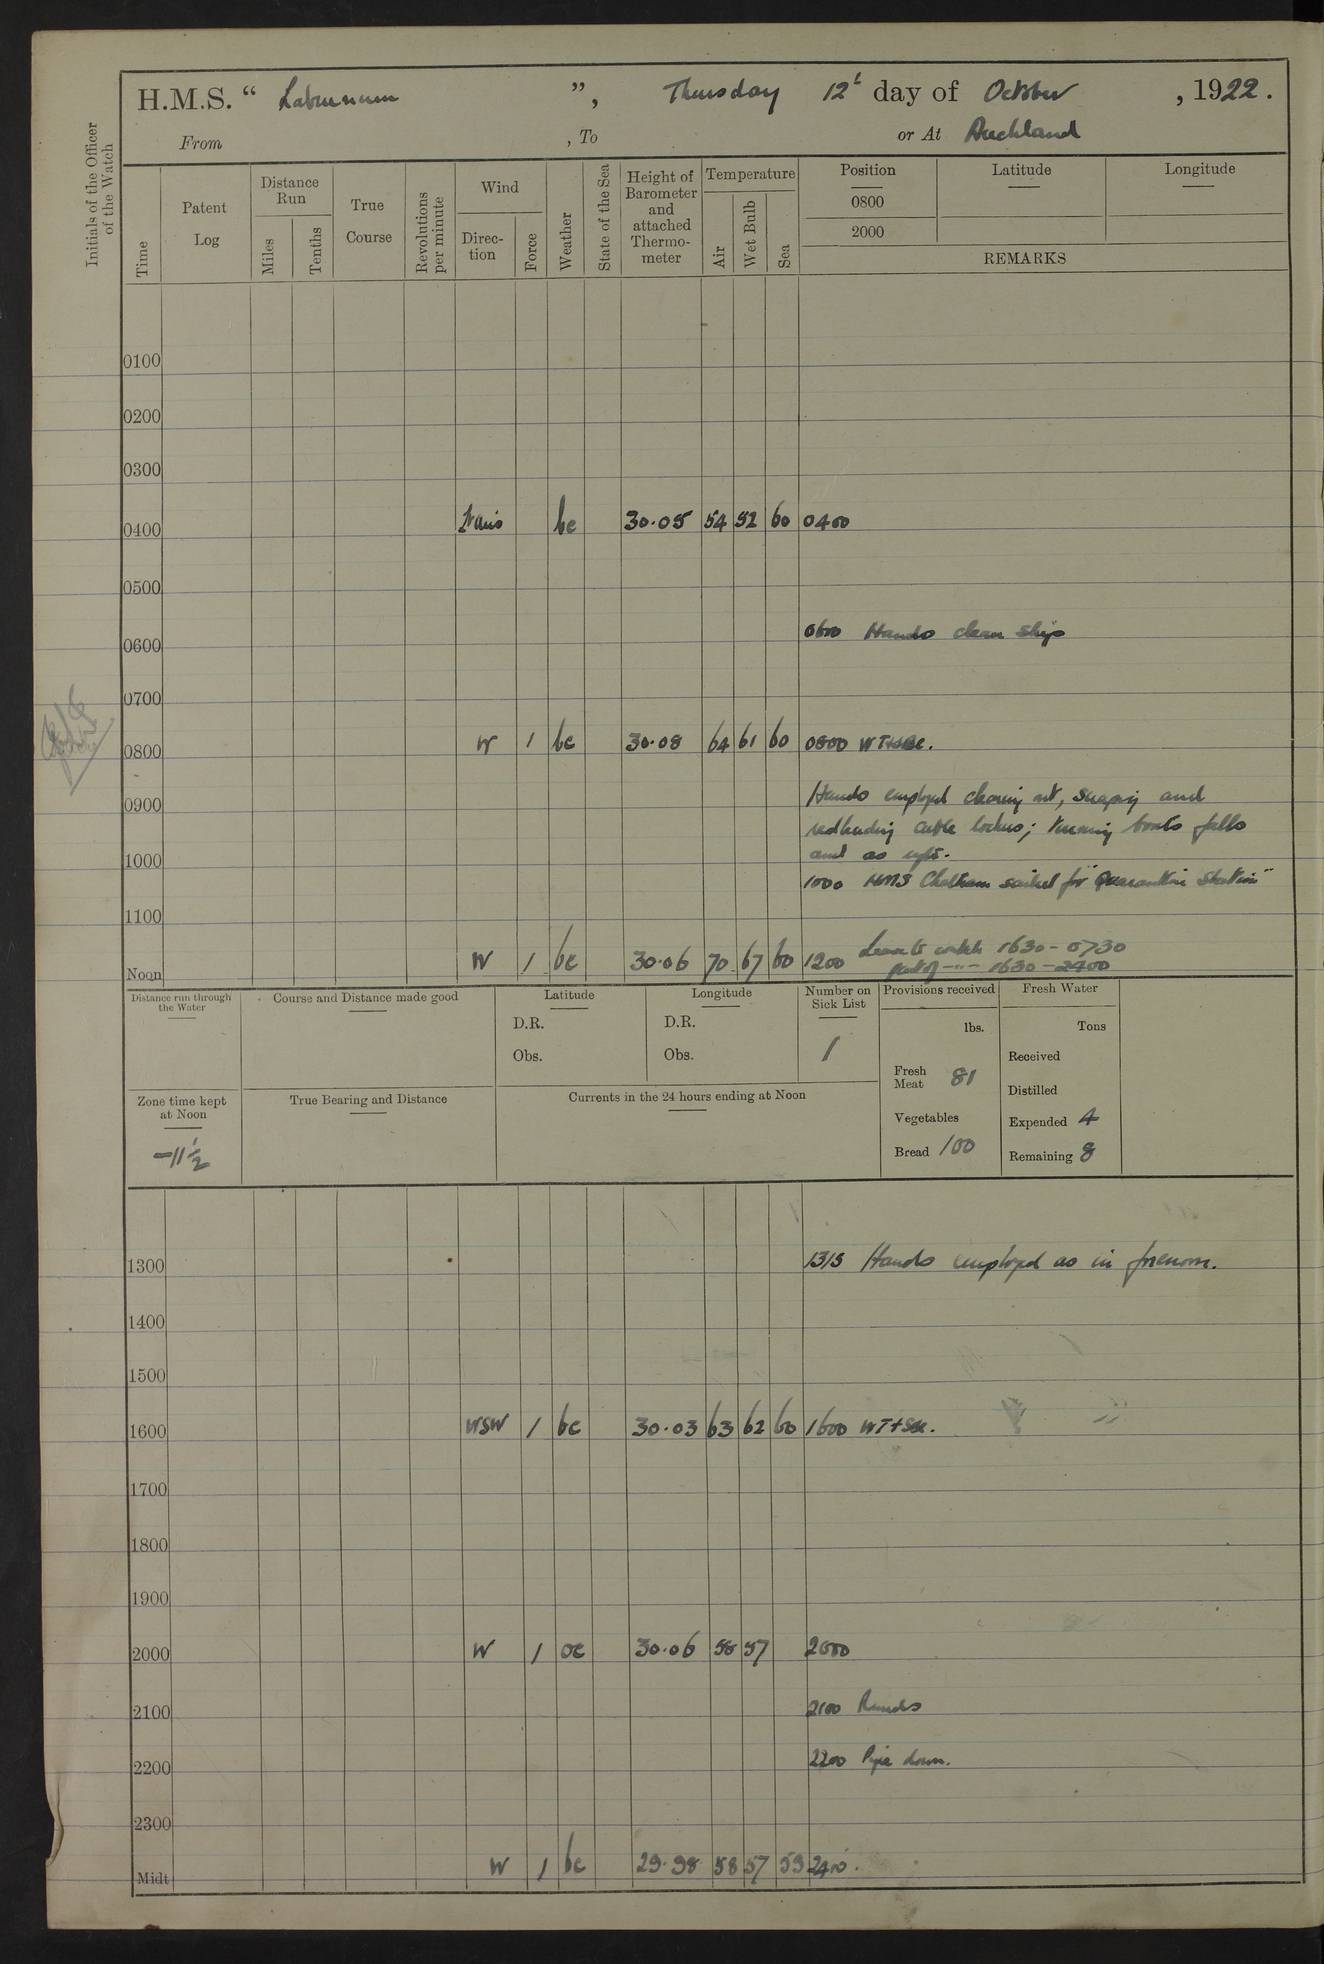 H.M.S. " Laburnum ", Thursday 12t day of October, 1922.
From , To or At Auckland
Initials of the Officer of the Watch
Time
Patent Log
Distance Run
Miles
Tenths
True Course
Revolutions per minute
Wind
Direc-tion
Force
Weather
State of the Sea
Height of Barometer and attached Thermo-meter
Temperature
Air
Wet Bulb
Sea
Position
0800
2000
Latitude
Longitude
REMARKS
0100
0200
0300
0400 bc 30.05 54 52 60 0400
0500
0600 0600 Hands clean ship
0700
0800 W 1 bc 30.08 64 61 60 0800
Hands employed and
0900
redleading cable lockers; turning boats falls
1000 and as
1000 HMS Chatham sailed for "Quarantine Station"
1100
Noon W 1 bc 30.06 70 67 60 1200 Leave to watch 1630 - 0730
part of -"- 1630 - 2400
Distance run through the Water
Course and Distance made good
Latitude
D.R.
Obs.
Longitude
D.R.
Obs.
Number on Sick List
1
Provisions received
lbs.
Fresh Meat 81
Vegetables
Bread 100
Fresh Water
Tons
Received
Distilled
Expended 4
Remaining 8
Zone time kept at Noon
-11½
True Bearing and Distance
Currents in the 24 hours ending at Noon
1300 1315 Hands employed as in forenoon.
1400
1500
1600 WSW 1 bc 30.03 63 62 60 1600
1700
1800
1900
2000 W 1 oc 30.06 58 57 2000
2100 2100 Rounds
2200 2200 Pipe down.
2300
Midt W 1 bc 29.98 58 57 59 2400.